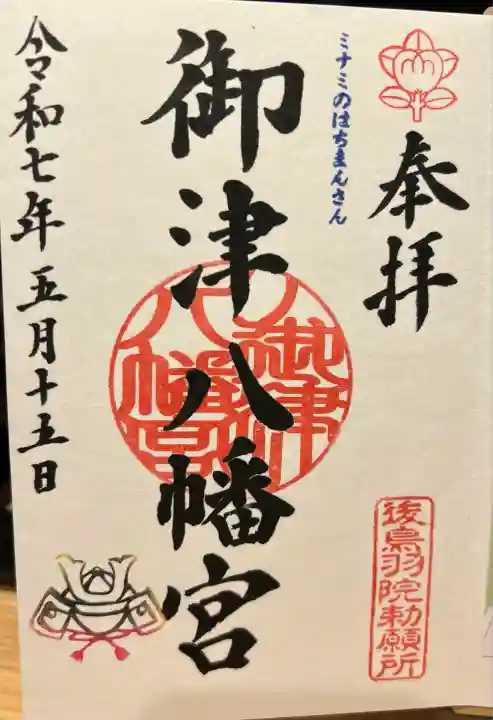 奉拝
後鳥羽院勅願所
ミナミのはちまんさん
御津八幡宮
御津八幡宮
令和七年五月十五日